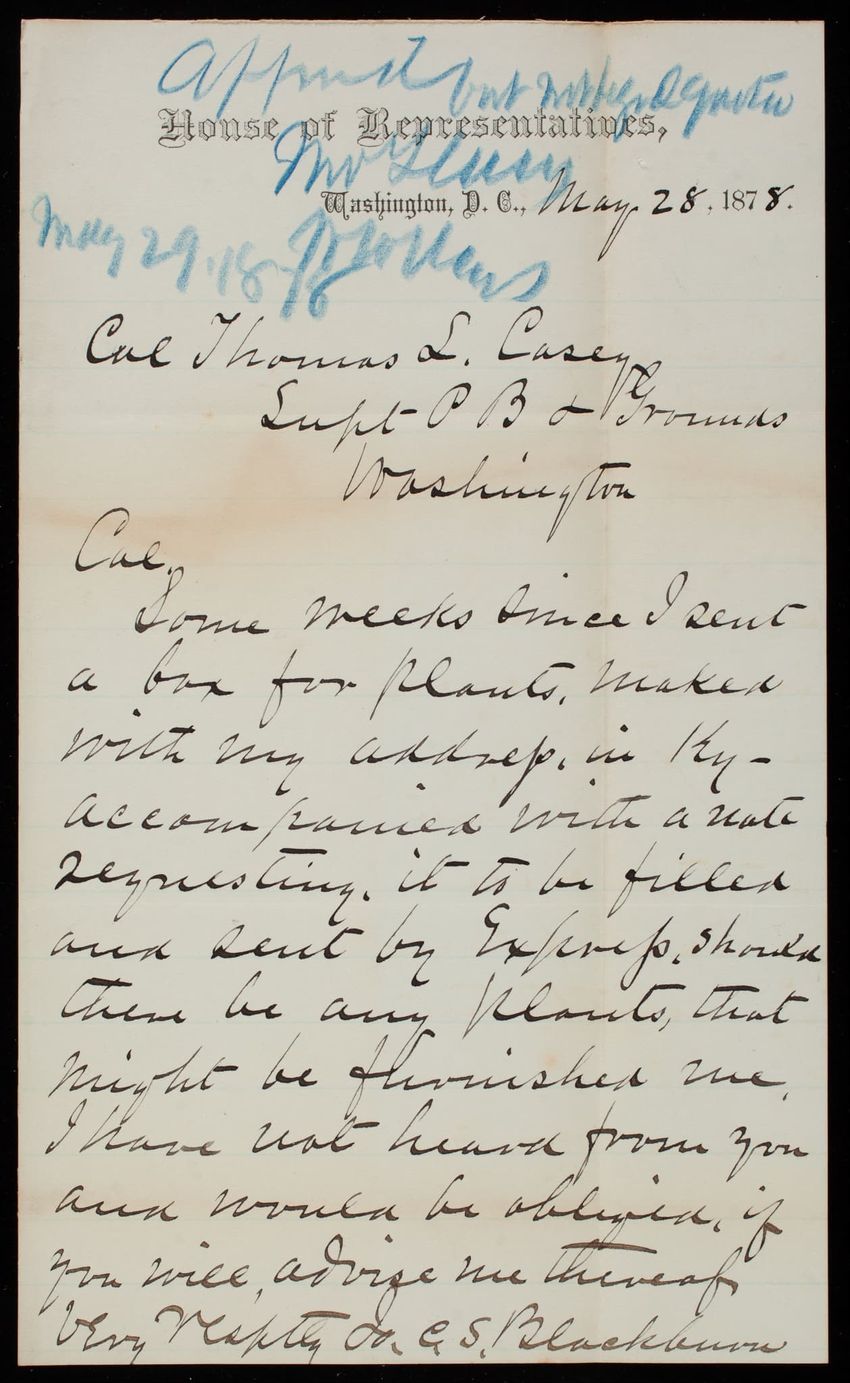 but
House of Representatives,
Washington, D. C., May 28, 1878.
May 29. 1878
Col Thomas L. Casey
Supt P B & Grounds
Washington
Col.
Some weeks since I sent
a box for plants, maked
with my address, in Ky-
accompanied with a note
requesting, it to be filled
and sent by Express, should
there be any plants, that
might be furnished me.
I have not heard from you
and would be obliged, if
you will, advise me thereof
Very Resptly &c. C. S. Blackburn